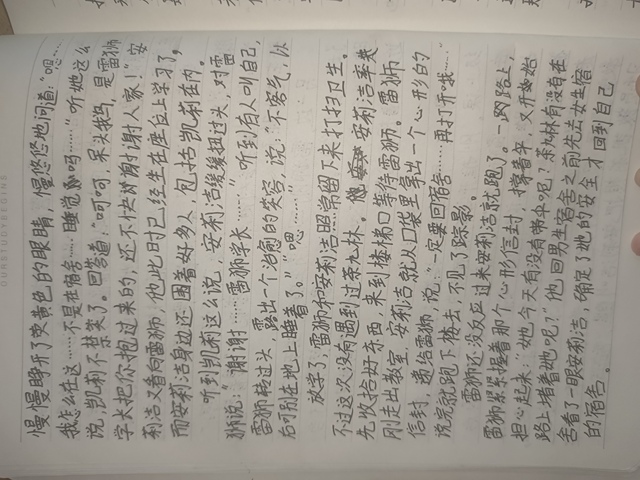 慢慢睁开了荧黄色的眼睛,慢悠悠地问道:“嗯……
我怎么在这……不是在宿舍……睡觉吗……”听她这么
说,凯利不禁笑了。回答道:“呵呵,呆头我鸟,是雷狮
学长把你抱过来的,还不快谢谢人家!”安
莉洁又看向雷狮,他此时已经坐在座位上学习了,
而安莉洁身边还围着好多人,包括凯莉在内。
听到凯莉这么说,安莉洁缓缓扭过头,对雷
狮说:“谢谢……雷狮学长……”听到有人叫自己,
雷狮转过头,露出一个治愈的笑容,说:“不客气,以
后可别在地上睡着了。”“嗯……”
放学了,雷狮和安莉洁照常留下来打扫卫生。
不过这次没有遇到过茶九林。安莉洁率先
先收拾好东西,来到楼梯口等待雷狮。雷狮
刚走出教室,安莉洁就从口袋里拿出一个心形的
信封,递给雷狮,说:“一定要回宿舍……再打开哦……”
说完就跑下楼去,不见了踪影。
雷狮还没反应过来安莉洁就跑了。一路上,
雷狮紧紧握着那个心形信封,撑着伞,又开始
担心起来:“她今天有没有带伞呢?茶九林有没有在
路上堵着她呢?”他回男生宿舍之前先去女生宿
舍看了一眼安莉洁,确定了她的安全才回到自己
的宿舍。
OURSTUDYBEGINS